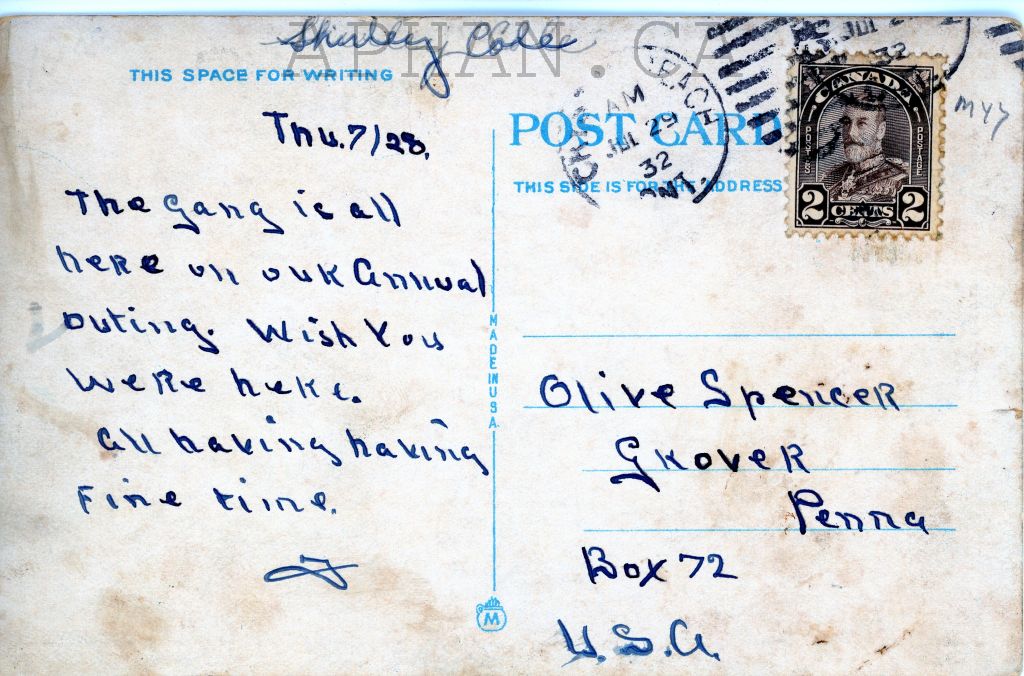 APHAN.CA
Shirley Cole
THIS SPACE FOR WRITING
Thu. 7/28.
The Gang is all
here on our Annual
outing. Wish You
WeRe heRe.
All having having
Fine time.
MADE IN U.S.A.
M
POST CARD
THIS SIDE IS FOR THE ADDRESS
BEACH
AM
JUL 29
32
ONT.
JUL 2
32
CANADA
POSTES
POSTAGE
2 CENTS 2
M47
Olive Spencer
Grover
Penna
Box 72
U.S.A.